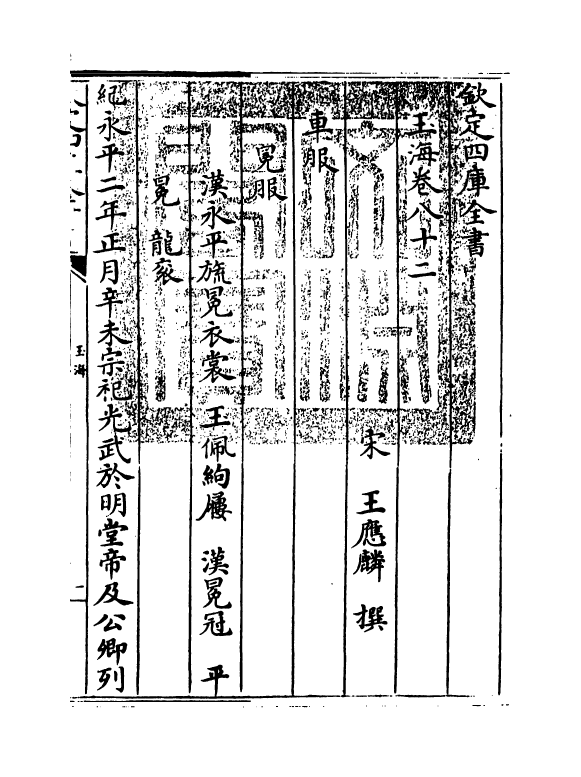 欽定四庫全書
玉海卷八十二
宋 王應麟 撰
車服
冕服
漢永平旒冕衣裳 玉佩絇屨 漢冕冠 平
冕 龍衮
紀永平二年正月辛未宗祀光武於明堂帝及公卿列
玉海